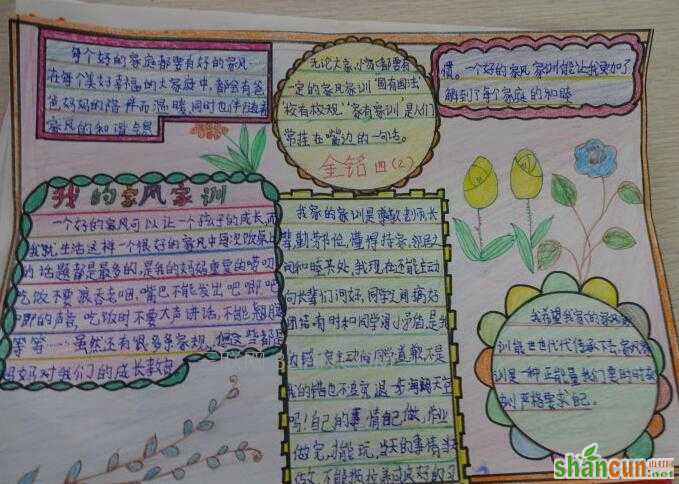 每个好的家庭都要有好的家风
在每个美好幸福的大家庭中,都会有爸
爸妈妈的陪伴而温暖,同时也伴随着
家风的和谐与熙
无论大家,小家都要有
一定的家风家训"国有国法
"校有校规""家有家训"是人们
常挂在嘴边的一句话。
金铭 四(2)
惯。一个好的家风家训能让我更加了
解到了每个家庭的和睦
我的家风家训
一个好的家风可以让一个孩子的成长,而
我就生活这样一个很好的家风中每次饭桌上
的话题都是最多的,是我的妈妈重要的唠叨
吃饭不要狼吞虎咽,嘴巴不能发出吧唧吧
唧的声音,吃饭时不要大声讲话,不能
等等……虽然还有很多条家规,但这些都是
妈妈对我们的成长
我家的家训是尊敬老师长
辈勤劳节俭,懂得持家,邻居之
间和睦共处,我现在还能主动
向长辈们问好,同学之间搞好
团结有时和同学闹小矛盾是我
的错一定主动向同学道歉,不是
我的错也不追究退一步海阔天空
吗!自己的事情自己做,作业
做完才能玩,当天的事情当天
做,不能拖拉养成良好的习
我希望我家的家风家
训能世世代代传承下去,家风家
训是一种正能量我们要时时刻
刻严格要求自己。
shancun
山村网
.net